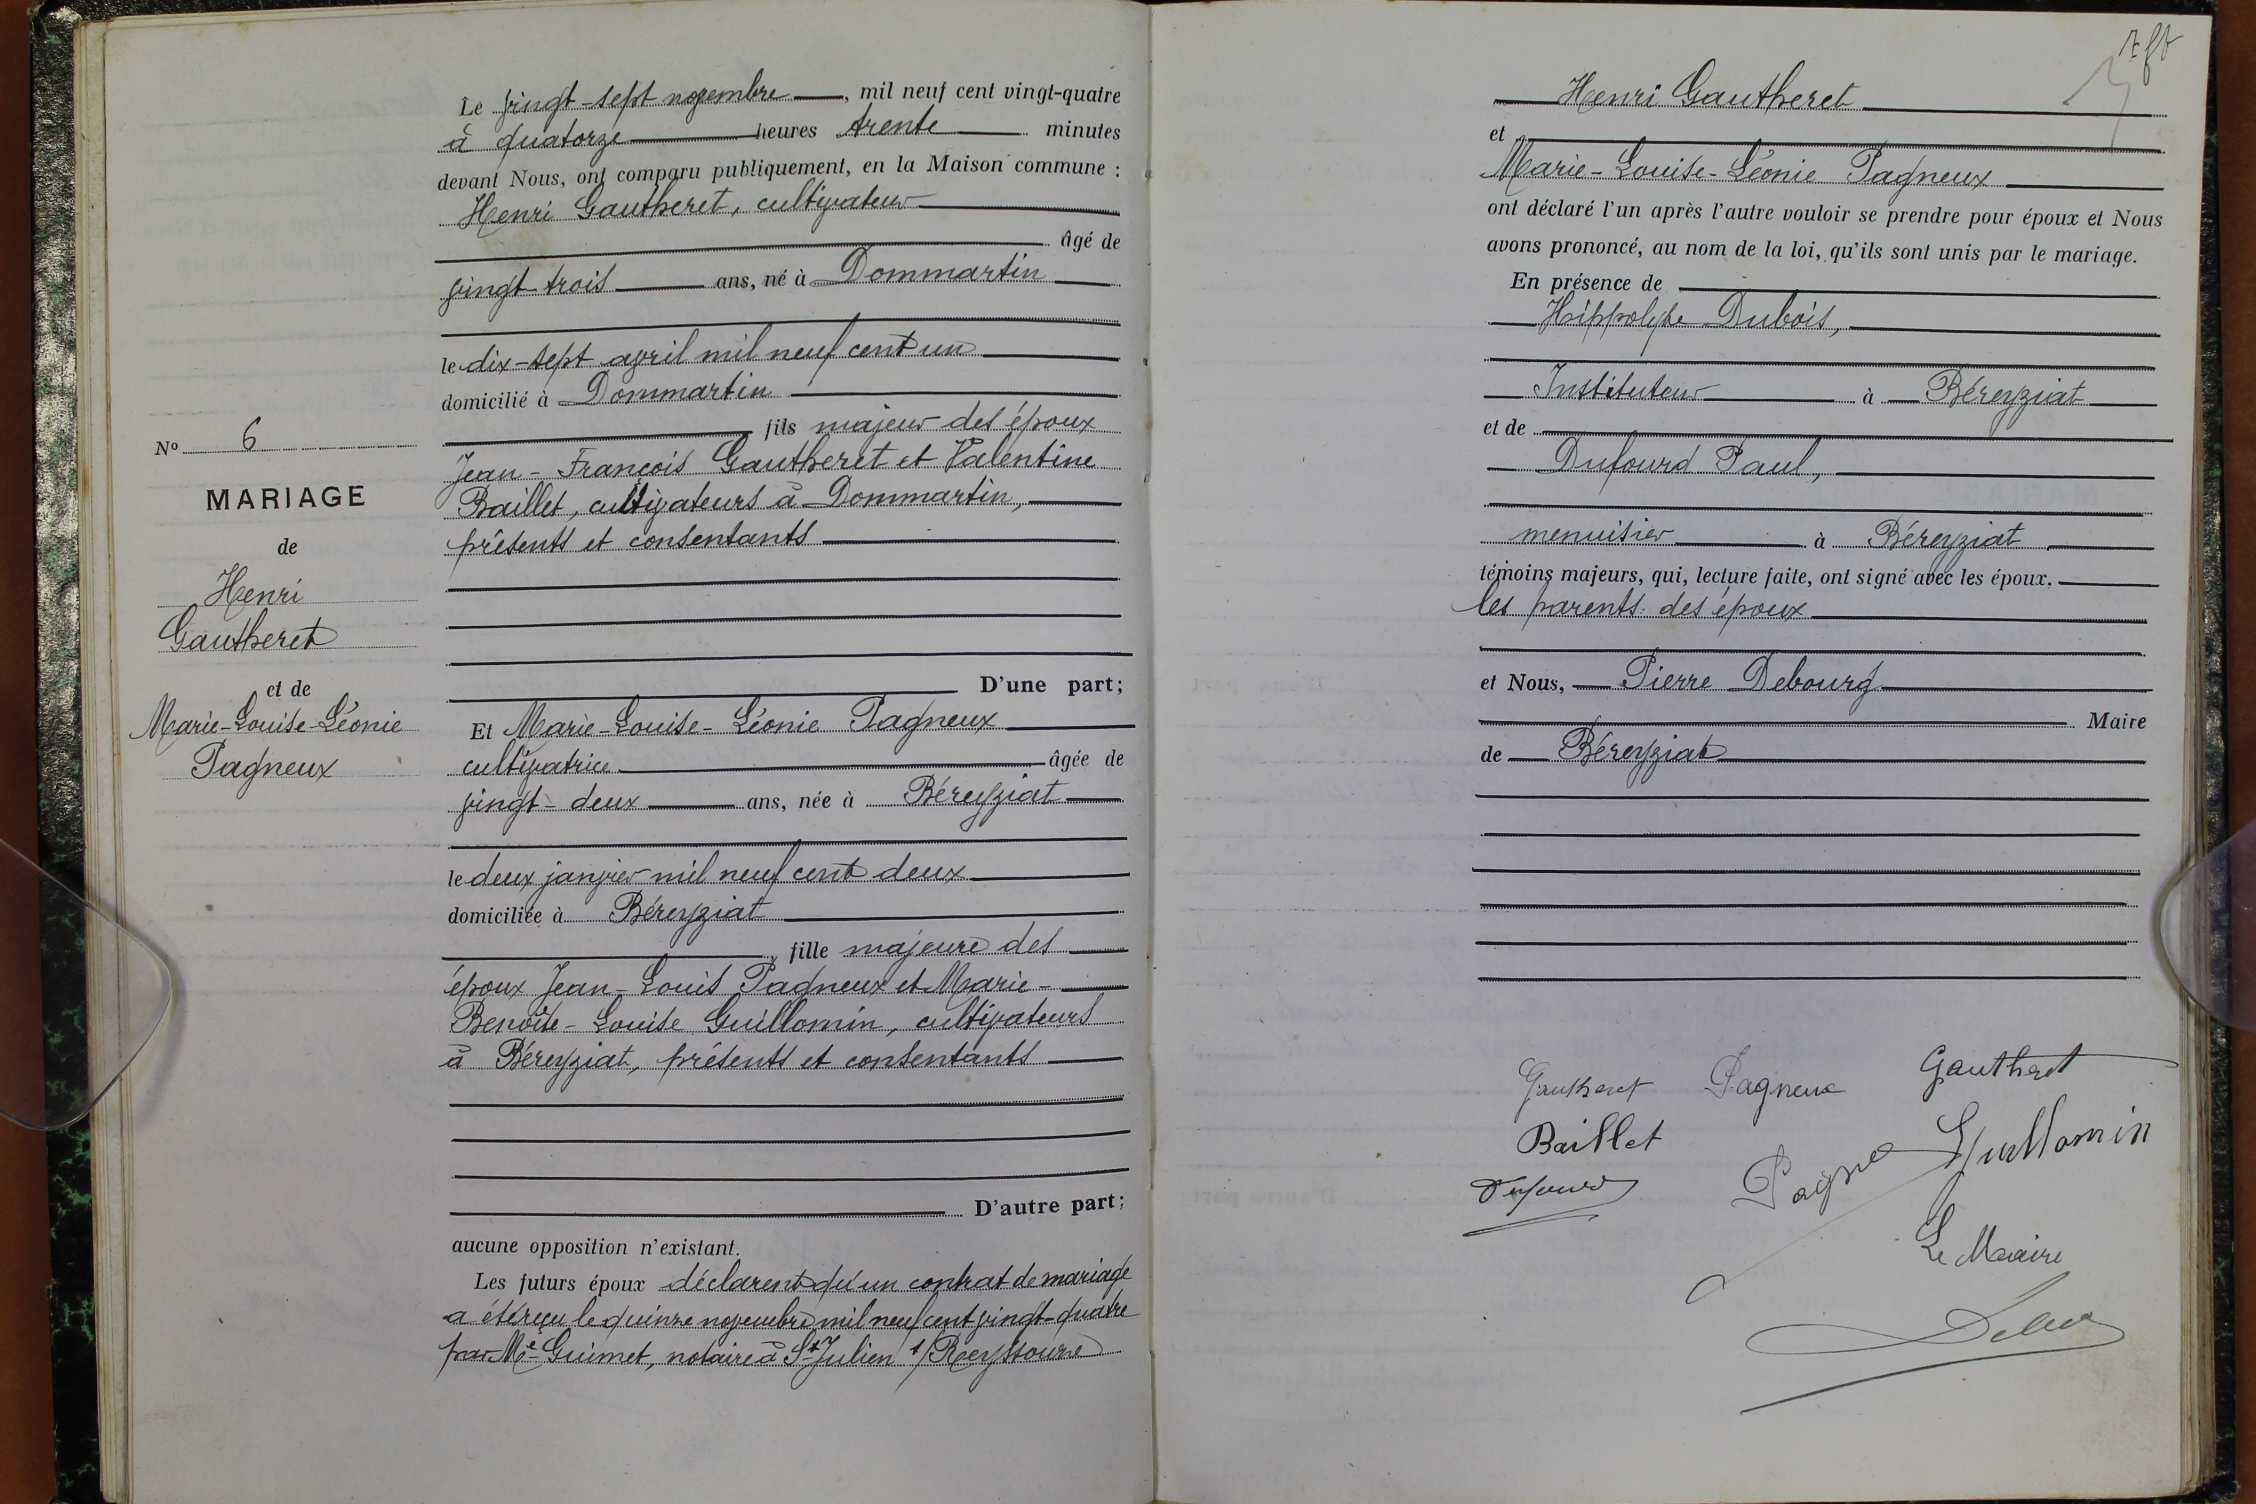 Le vingt-sept novembre, mil neuf cent vingt-quatre
à quatorze heures trente minutes
devant Nous, ont comparu publiquement, en la Maison commune :
Henri Gautheret, cultivateur
âgé de
vingt trois ans, né à Dommartin
le dix-sept avril mil neuf cent un
domicilié à Dommartin
fils majeur des époux
Jean-François Gautheret et Valentine
Baillet, cultivateurs à Dommartin,
présents et consentants
D'une part;
Et Marie-Louise-Léonie Pagneux
cultivatrice âgée de
vingt-deux ans, née à Béreyziat
le deux janvier mil neuf cent deux
domiciliée à Béreyziat
, fille majeure des
époux Jean-Louis Pagneux et Marie-
Benoîte-Louise Guillomin, cultivateurs
à Béreyziat, présents et consentants
D'autre part;
aucune opposition n'existant.
Les futurs époux déclarent qu'un contrat de mariage
a été reçu le quinze novembre mil neuf cent vingt-quatre
par Me Guimet, notaire à St Julien s/Reyssouze
No 6
MARIAGE
de
Henri
Gautheret
et de
Marie-Louise-Léonie
Pagneux
Henri Gautheret
et
Marie-Louise-Léonie Pagneux
ont déclaré l'un après l'autre vouloir se prendre pour époux et Nous
avons prononcé, au nom de la loi, qu'ils sont unis par le mariage.
En présence de
Hippolyte Dubois,
Instituteur à Béreyziat
et de
Dufourd Paul,
menuisier à Béreyziat
témoins majeurs, qui, lecture faite, ont signé avec les époux.
les parents des époux
et Nous, Pierre Debourg
Maire
de Béreyziat
Gautheret Pagneux Gautheret
Baillet Guillomin
Dufourd
Le Maire